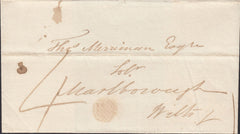 Thos Merriman Esqre
Solr
4
Marlborough
Wilts